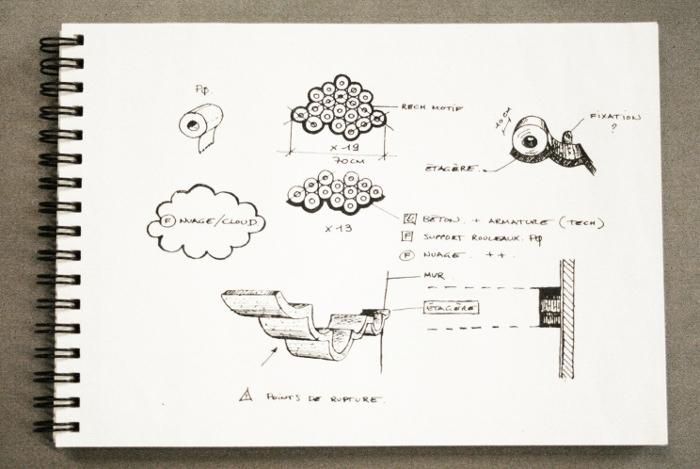 PQ.
RECH MOTIF
x 19
70CM
10CM
FIXATION
?
ÉTAGÈRE.
F NUAGE/CLOUD
x 13
C BÉTON + ARMATURE (TECH)
F SUPPORT ROULEAUX PQ
F NUAGE. ++.
MUR.
ÉTAGÈRE
! POINTS DE RUPTURE.